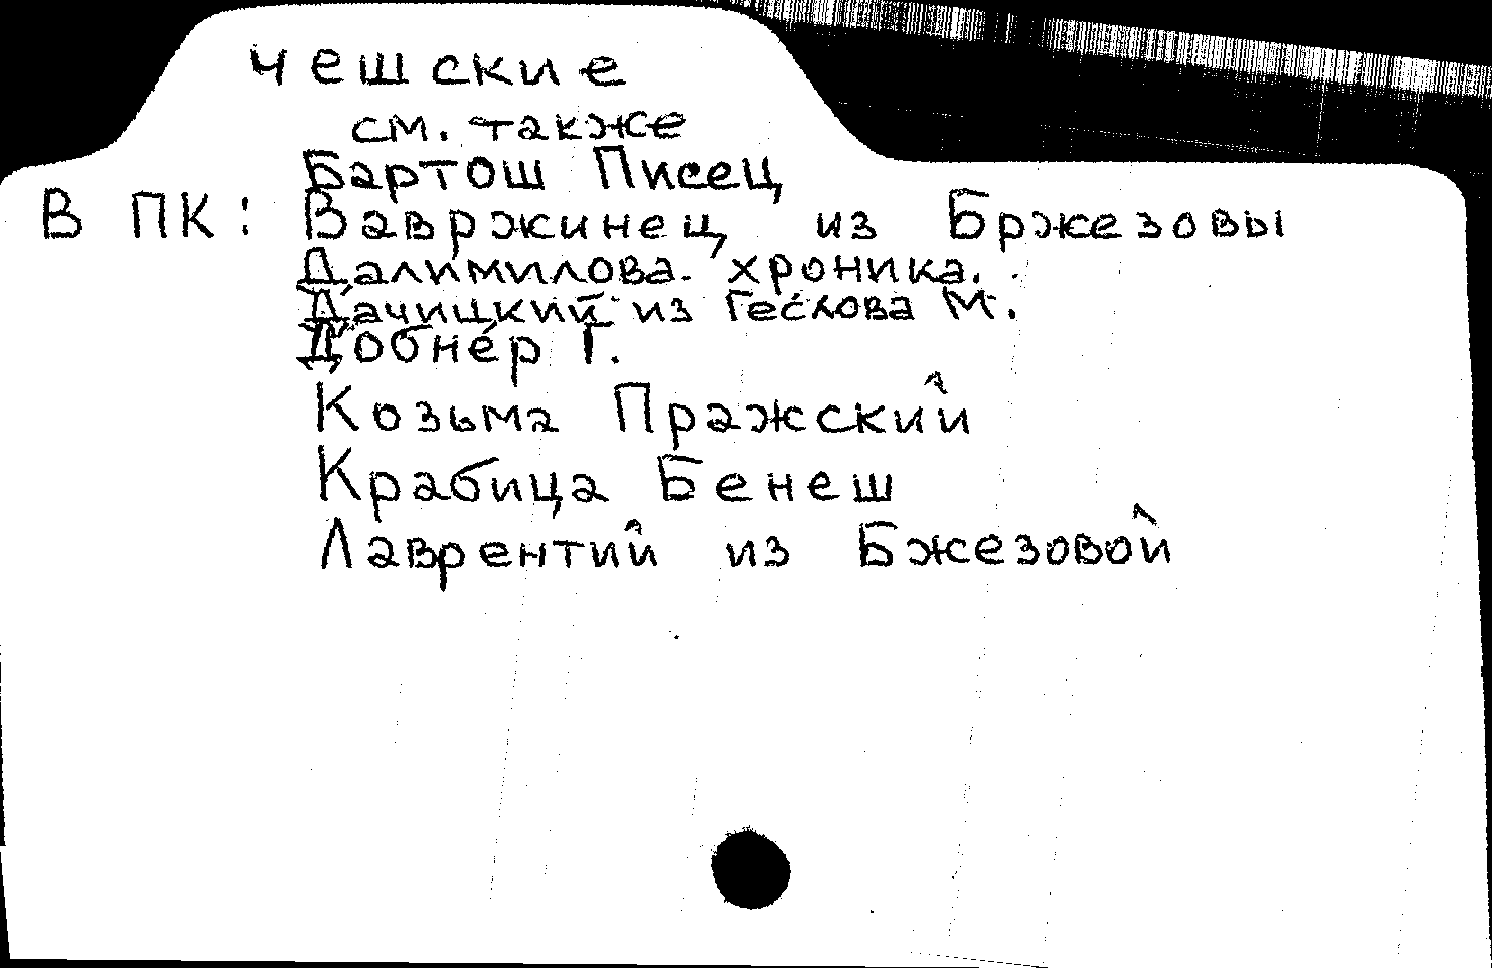 чешские
см. также
Бартош Писец
В ПК: Вавржинец из Бржезовы
Далимилова хроника.
Дачицкий из Геслова М.
Добнер Г.
Козьма Пражский
Крабица Бенеш
Лаврентий из Бжезовой